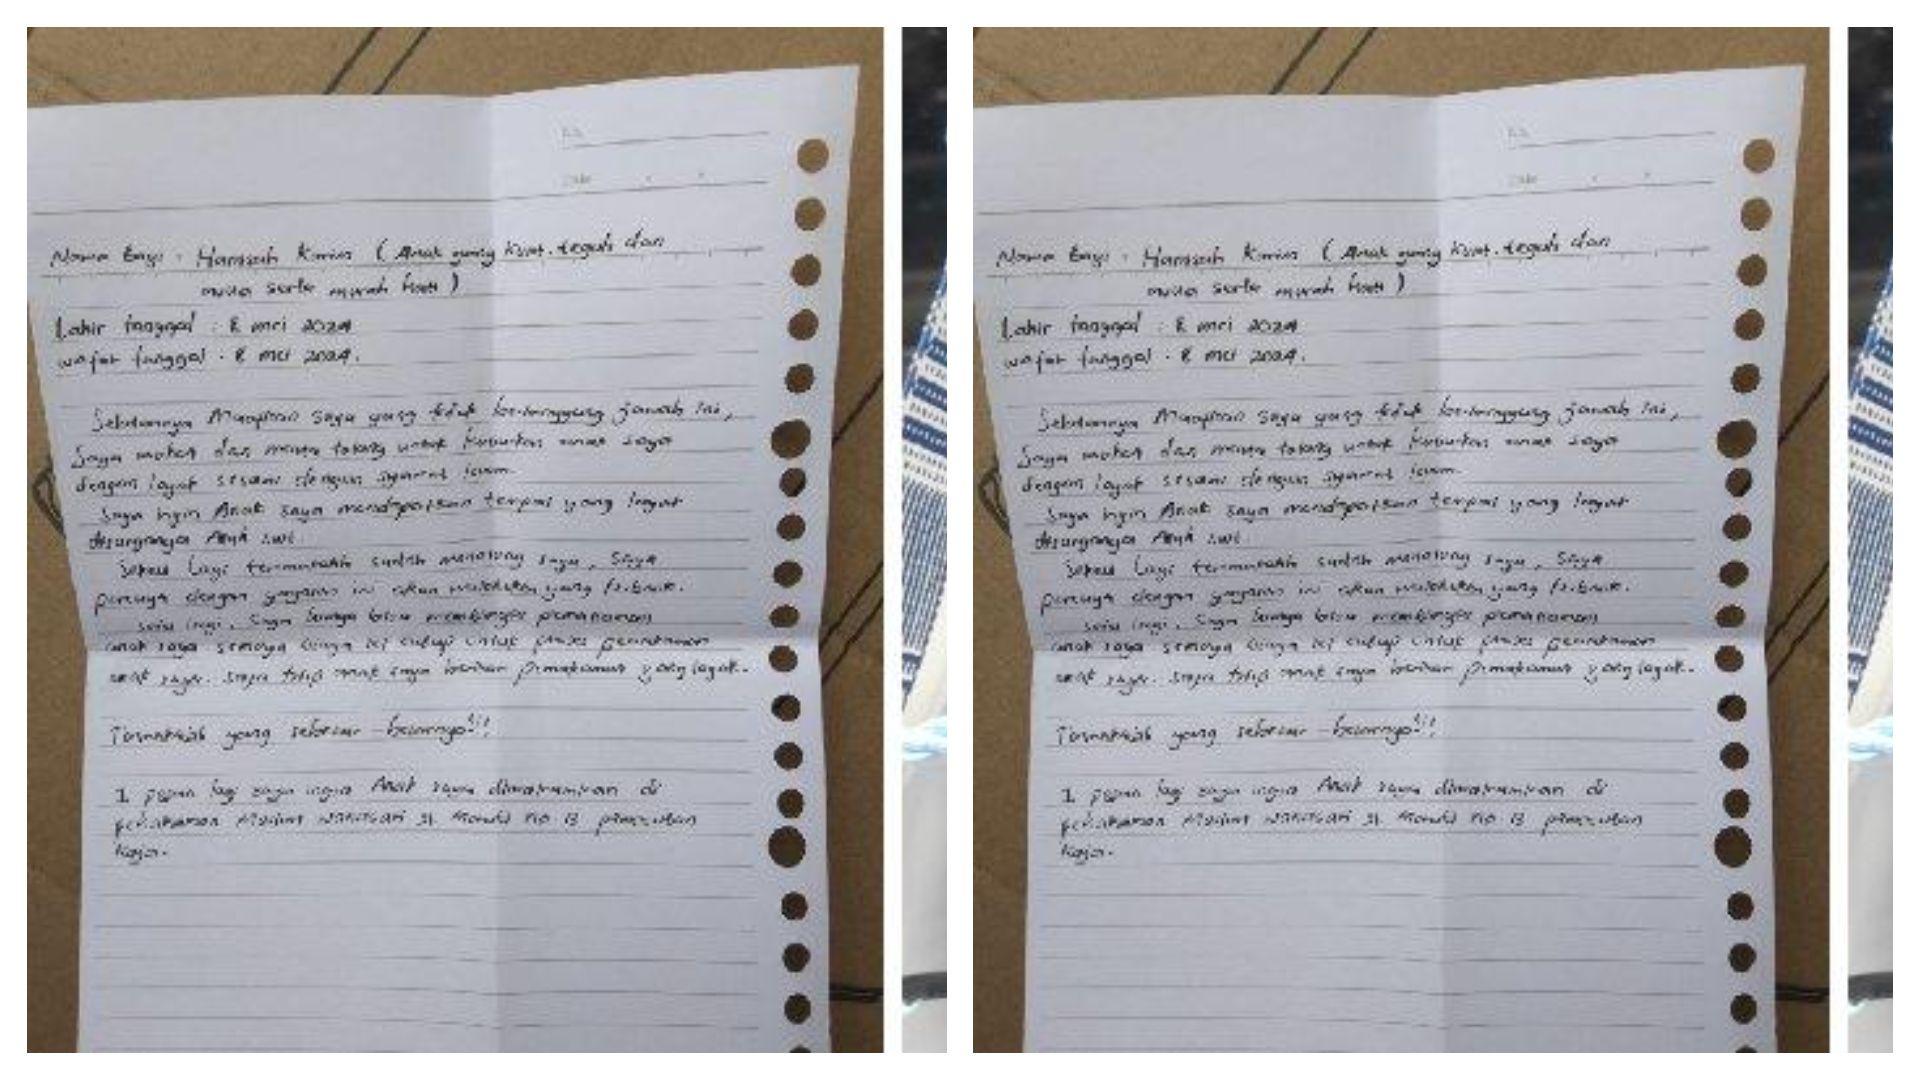 Nama Bayi : Hamzah Karim ( Anak yang kuat, teguh dan
mulia serta murah hati )
Lahir tanggal : 8 mei 2024
wafat tanggal : 8 mei 2024.
Sebelumnya Maafkan saya yang tidak bertanggung jawab ini,
Saya mohon dan minta tolong untuk kuburkan anak saya
dengan layak sesuai dengan syariat islam
Saya ingin Anak saya mendapatkan tempat yang layak
disurganya Allah swt.
Sekali Lagi terimakasih sudah menolong saya, Saya
percaya dengan yayasan ini akan melakukan yang terbaik.
sekali lagi, saya hanya bisa pemakaman
anak saya semoga uang ini cukup untuk proses pemakaman
anak saya. saya titip anak saya berikan pemakaman yang layak.
Terimakasih yang sebesar - besarnya!!!
1 pesan lagi saya ingin Anak saya dimakamkan di
pemakaman Muslim no 13 pemecutan
Kaja.
Nama Bayi : Hamzah Karim ( Anak yang kuat, teguh dan
mulia serta murah hati )
Lahir tanggal : 8 mei 2024
wafat tanggal : 8 mei 2024.
Sebelumnya Maafkan saya yang tidak bertanggung jawab ini,
Saya mohon dan minta tolong untuk kuburkan anak saya
dengan layak sesuai dengan syariat islam
Saya ingin Anak saya mendapatkan tempat yang layak
disurganya Allah swt.
Sekali Lagi terimakasih sudah menolong saya, Saya
percaya dengan yayasan ini akan melakukan yang terbaik.
sekali lagi, saya hanya bisa pemakaman
anak saya semoga uang ini cukup untuk proses pemakaman
anak saya. saya titip anak saya berikan pemakaman yang layak.
Terimakasih yang sebesar - besarnya!!!
1 pesan lagi saya ingin Anak saya dimakamkan di
pemakaman Muslim no 13 pemecutan
Kaja.